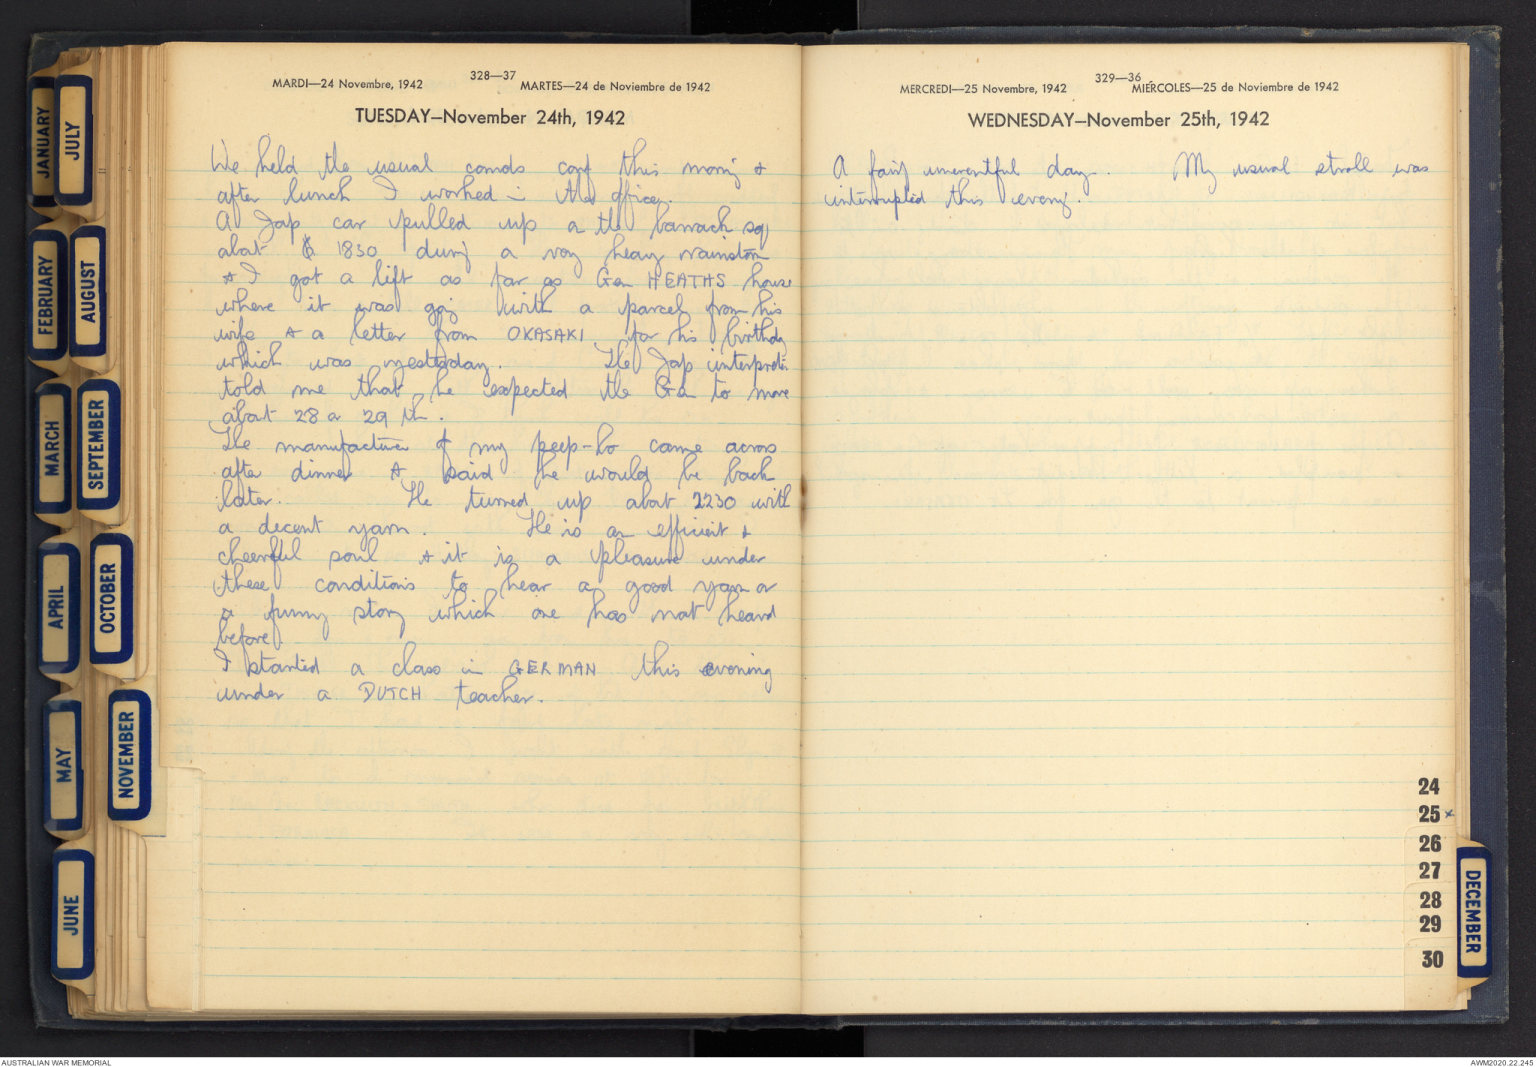 JANUARY
JULY
FEBRUARY
AUGUST
MARCH
SEPTEMBER
APRIL
OCTOBER
MAY
NOVEMBER
JUNE
328—37
MARDI—24 Novembre, 1942 MARTES—24 de Noviembre de 1942
TUESDAY—November 24th, 1942
We held the usual comds conf this morng &
after lunch I worked in the office.
A Jap car pulled up on the barrack sq
about 1830 during a very heavy rainstorm
& I got a lift as far as Gen HEATHS house
where it was going with a parcel from his
wife & a letter from OKASAKI for his birthday
which was yesterday. The Jap interpreter
told me that he expected the Gen to move
about 28 or 29 th.
The manufacturer of my peep-bo came across
after dinner & said he would be back
later. He turned up about 2230 with
a decent yarn. He is an efficient &
cheerful soul & it is a pleasure under
these conditions to hear a good yarn or
a funny story which one has not heard
before.
I started a class in GERMAN this evening
under a DUTCH teacher.
329—36
MERCREDI—25 Novembre, 1942 MIÉRCOLES—25 de Noviembre de 1942
WEDNESDAY—November 25th, 1942
A fairly uneventful day. My usual stroll was
interrupted this eveng.
24
25 x
26
27
28
29
30
DECEMBER
AUSTRALIAN WAR MEMORIAL
AWM2020.22.245